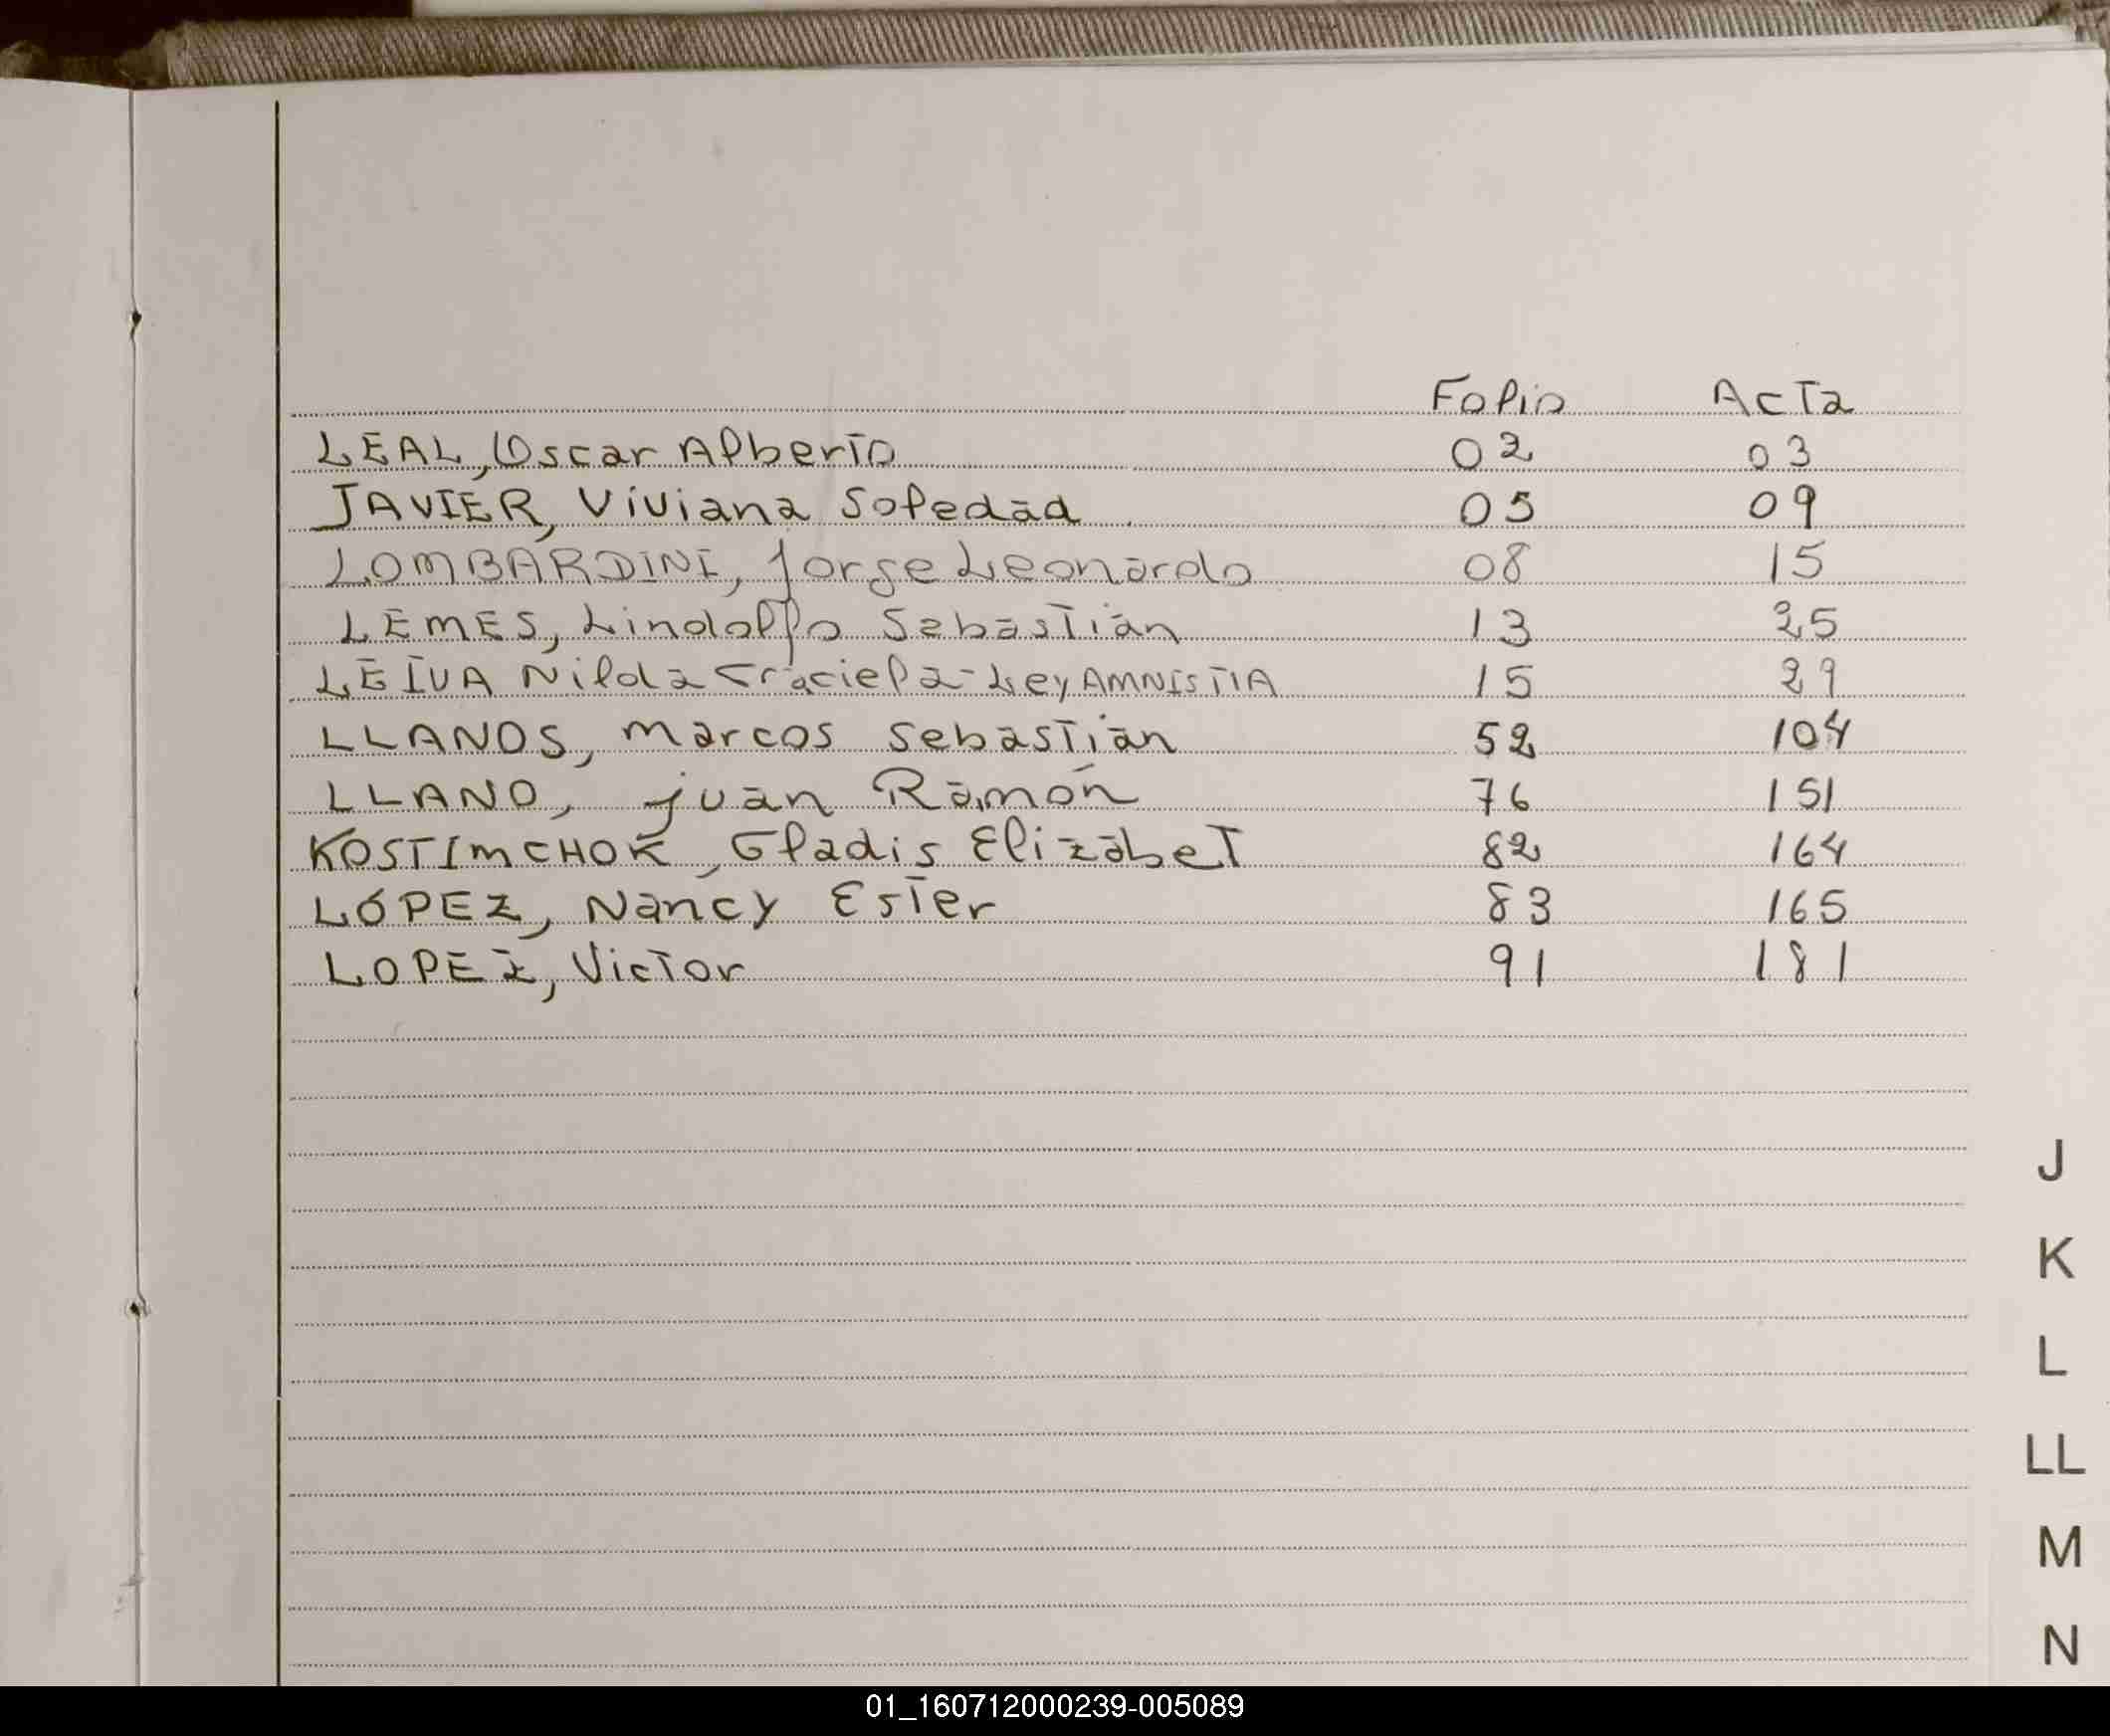 Folio Acta
LEAL, Oscar Alberto 02 03
JAVIER, Viviana Soledad 05 09
LOMBARDINI, Jorge Leonardo 08 15
LEMES, Lindolfo Sebastián 13 25
LEIVA Nilda Graciela - Ley AMNISTIA 15 29
LLANOS, Marcos Sebastián 52 104
LLANO, Juan Ramón 76 151
KOSTIMCHOK, Gladis Elizabet 82 164
LÓPEZ, Nancy Ester 83 165
LOPEZ, Victor 91 181
J
K
L
LL
M
N
01_160712000239-005089